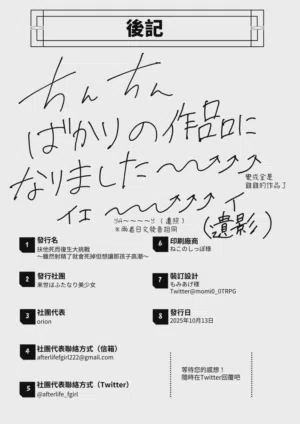 後記
ちんちん
ばかりの作品に
なりました〜〜↗↗↗
イェ〜〜↗↗↗イ
(遺影)
變成全是
雞雞的作品了
YA~~~~Y（遺照）
※兩者日文發音相同
1 發行名
扶他死而復生大挑戰
～雖然射精了就會死掉但想讓那孩子高潮～
2 發行社團
來世はふたなり美少女
3 社團代表
orion
4 社團代表聯絡方式（信箱）
afterlifefgirl222@gmail.com
5 社團代表聯絡方式（Twitter）
@afterlife_fgirl
6 印刷廠商
ねこのしっぽ様
7 裝訂設計
もみあげ様
Twitter@momi0_0TRPG
8 發行日
2025年10月13日
等待您的感想！
隨時在Twitter回覆吧